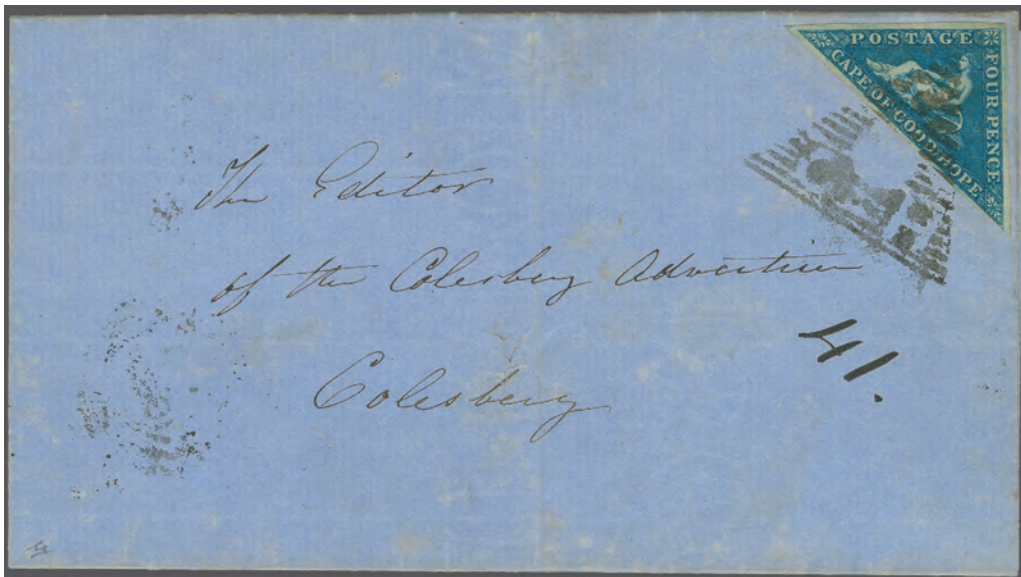 POSTAGE
FOUR PENCE
CAPE OF GOOD HOPE
The Editor
of the Colesberg Advertiser
Colesberg
41.